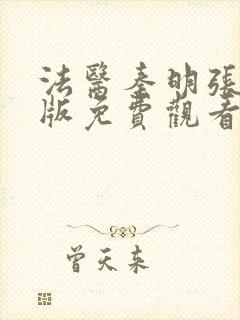 法醫秦明張
版免費觀看
曾天來